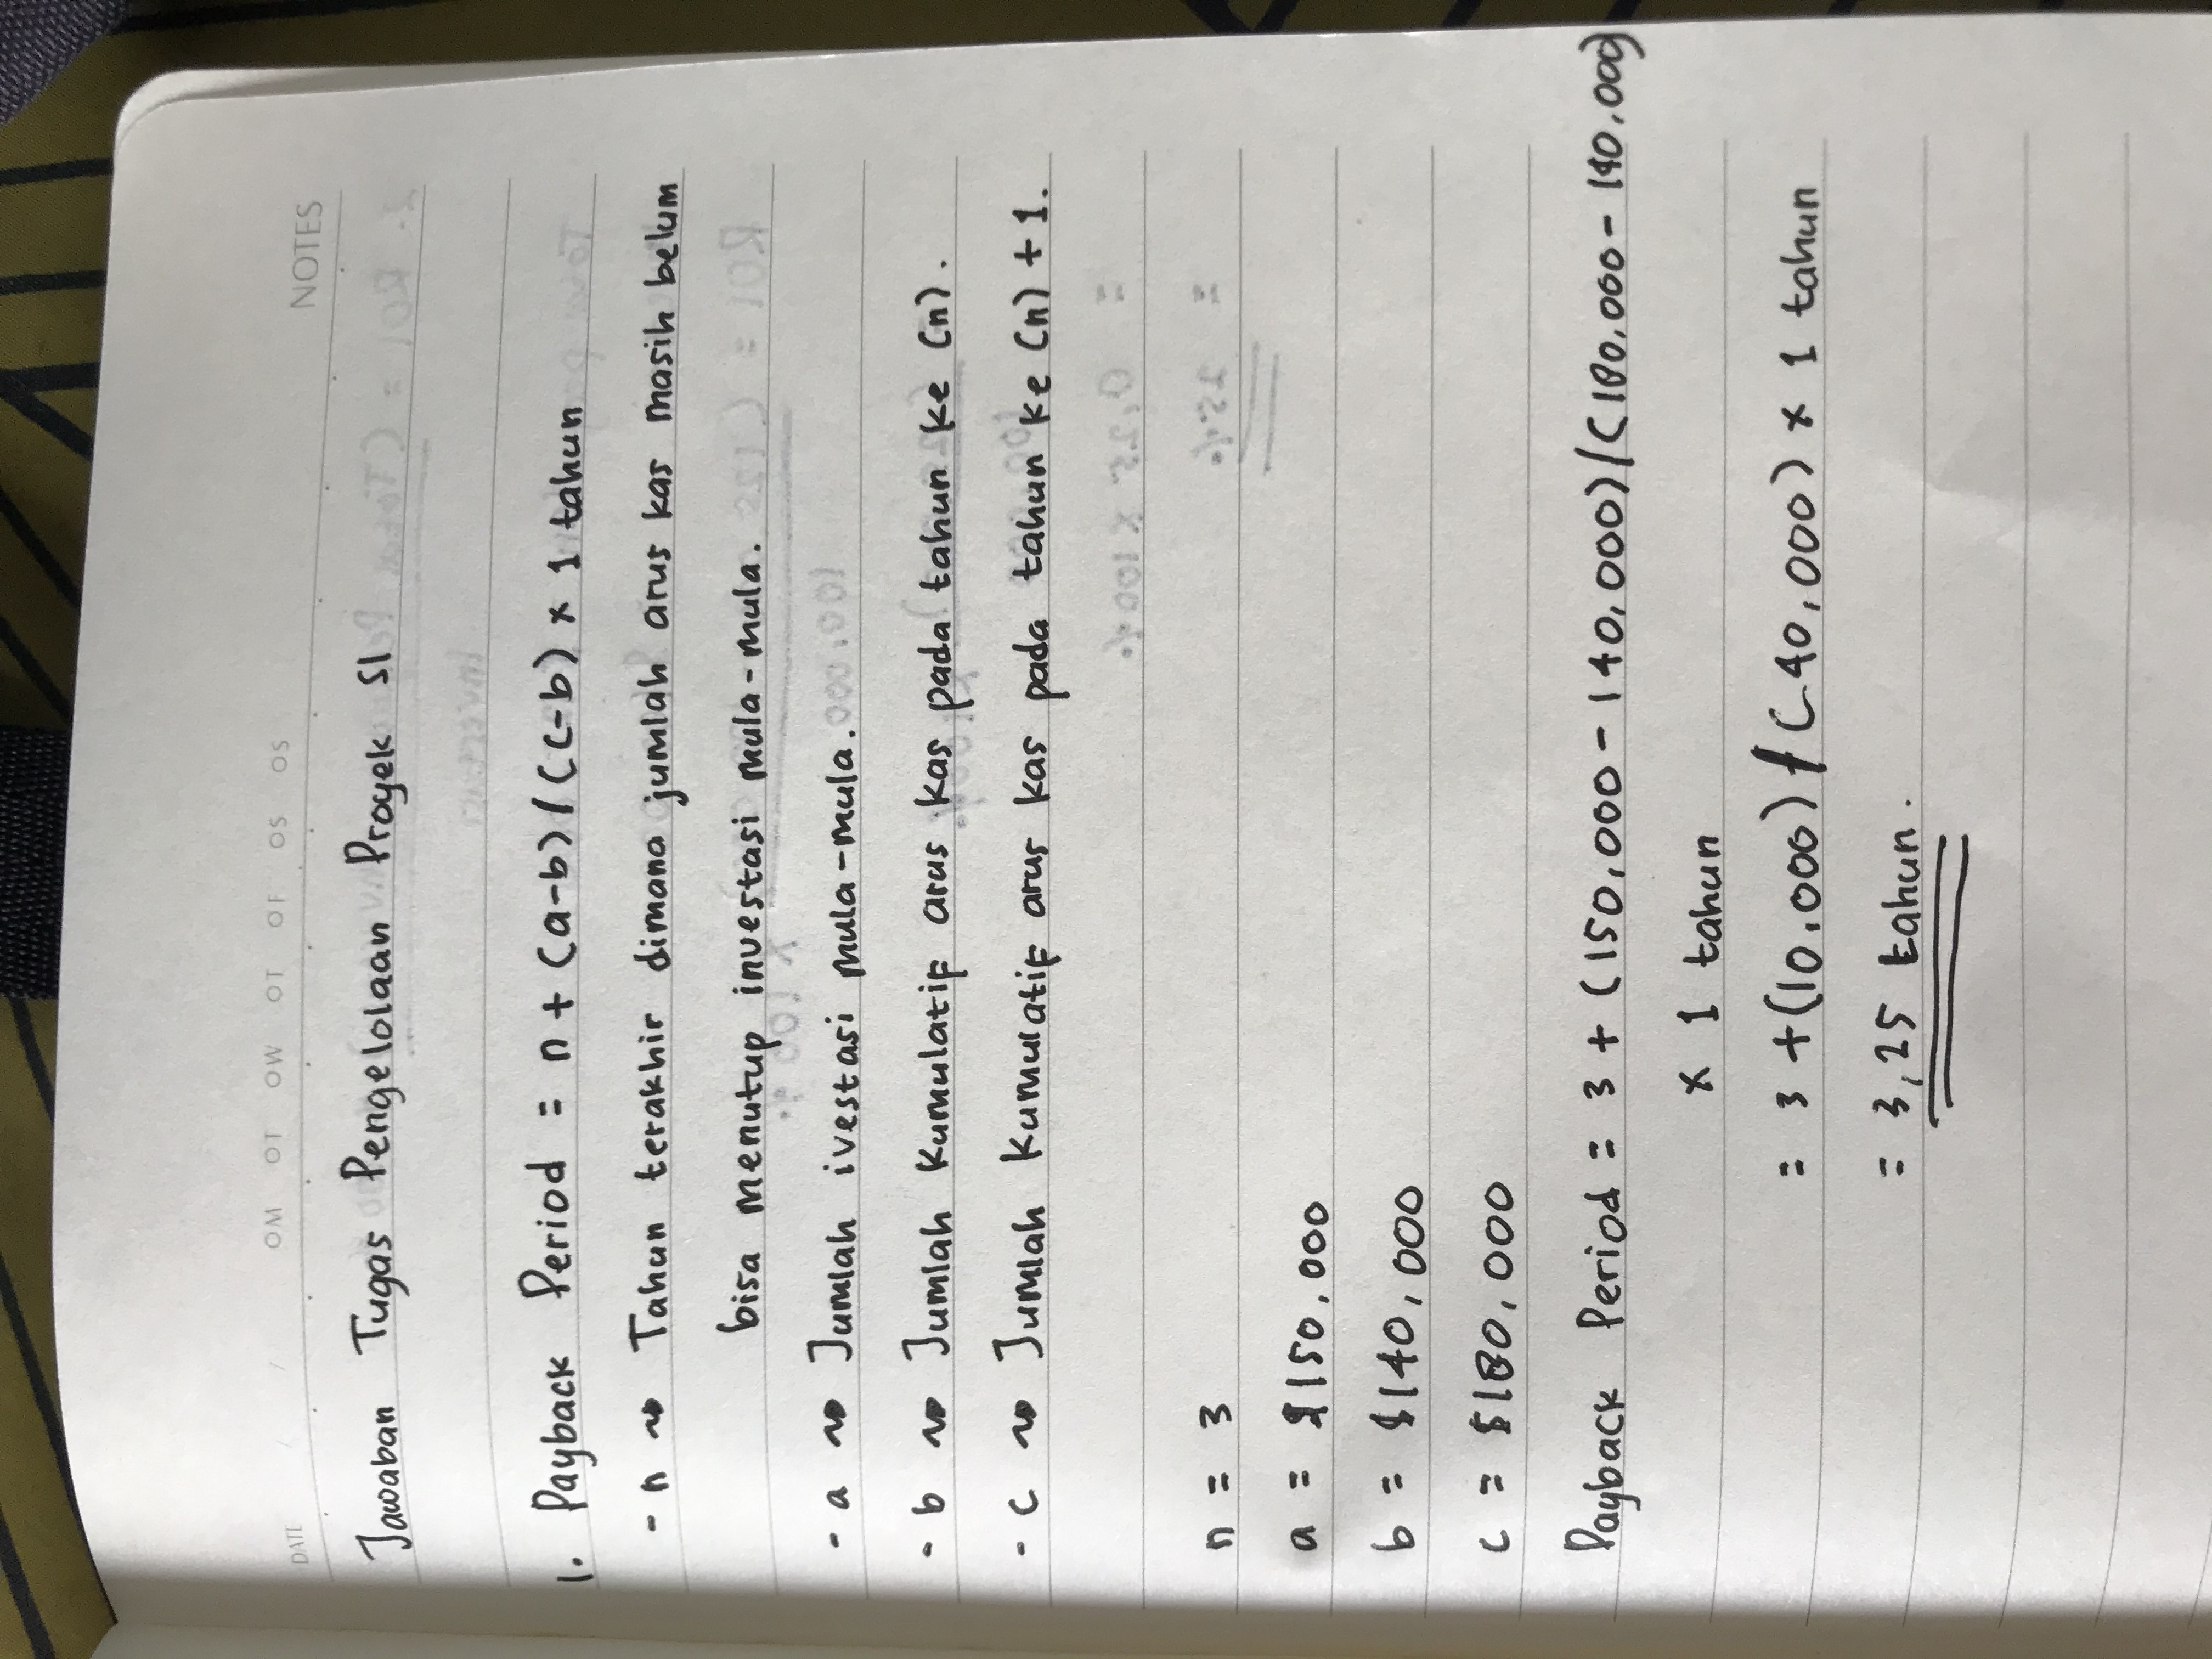 DATE / / OM OT OW OT OF OS OS NOTES
Jawaban Tugas Pengelolaan Proyek SI
1. Payback Period = n + (a-b) / (c-b) x 1 tahun
- n ~> Tahun terakhir dimana jumlah arus kas masih belum
bisa menutup investasi mula-mula.
- a ~> Jumlah ivestasi mula-mula.
- b ~> Jumlah Kumulatif arus kas pada tahun ke (n).
- c ~> Jumlah Kumulatif arus kas pada tahun ke (n) + 1.
n = 3
a = $150,000
b = $140,000
c = $180,000
Payback Period = 3 + (150,000 - 140,000) / (180,000 - 140,000)
x 1 tahun
= 3 + (10,000) / (40,000) x 1 tahun
= 3,25 tahun.